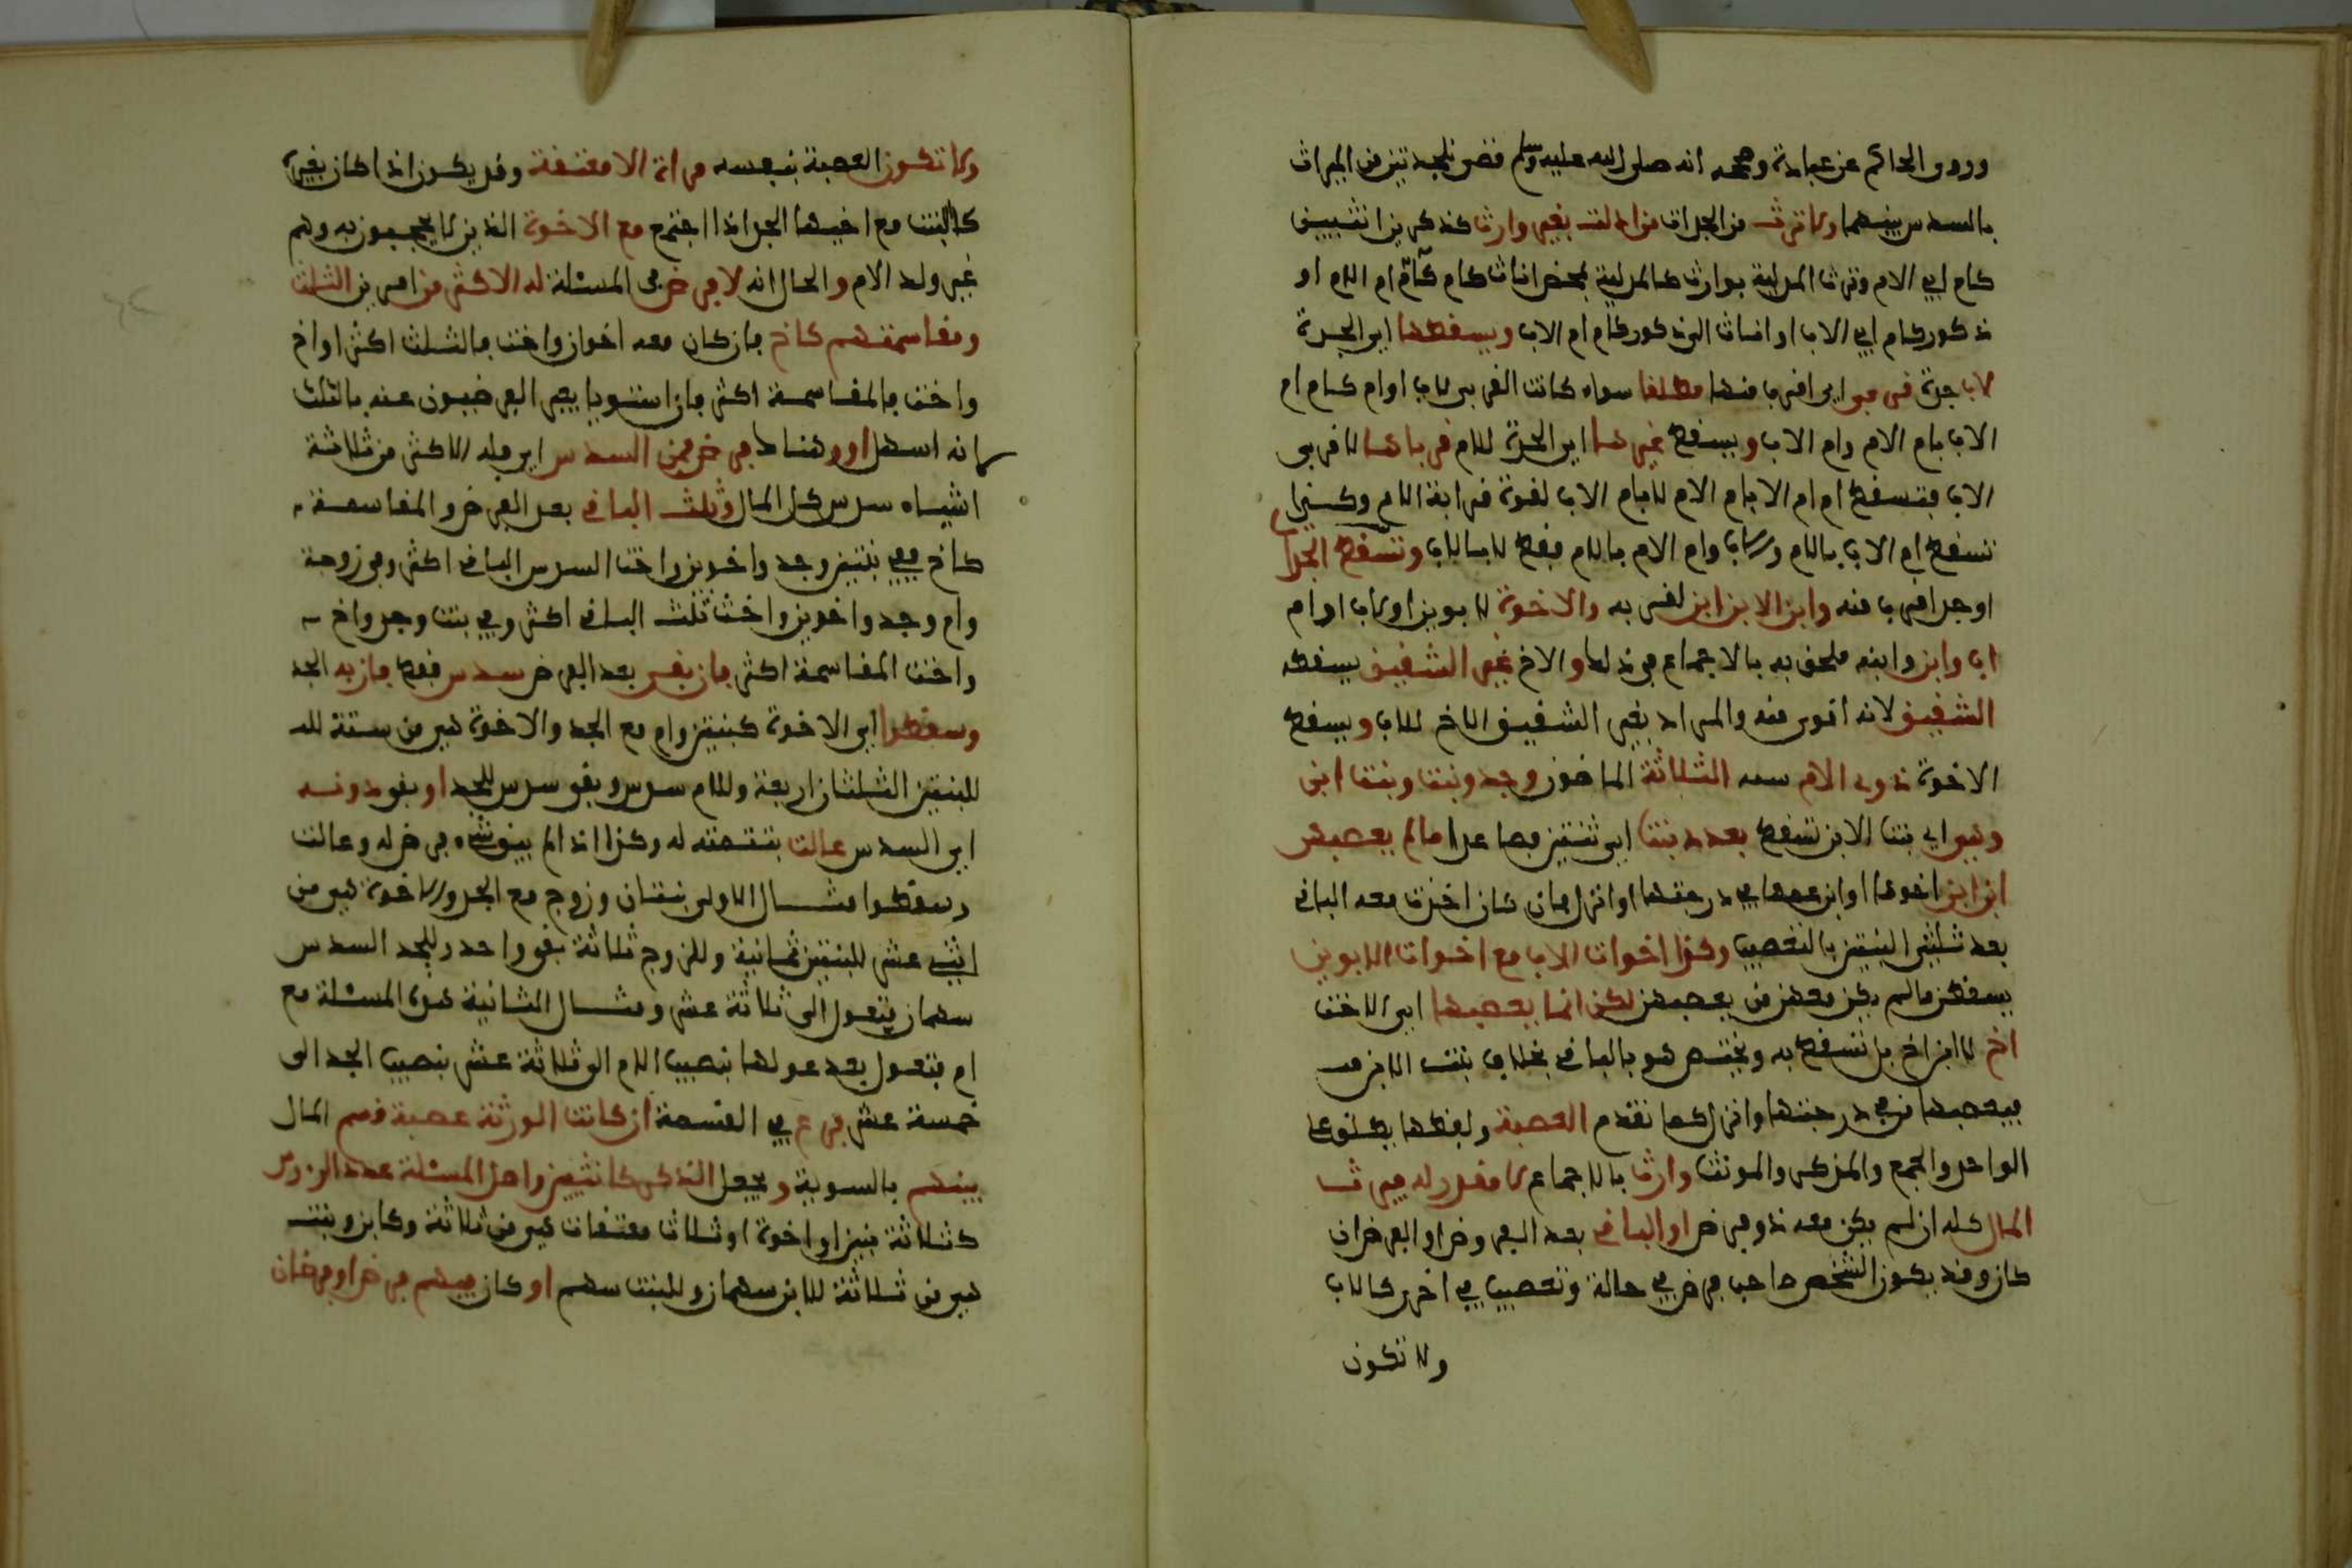 وروى الحاكم عن عبادة وصححه انه صلى الله عليه وسلم قضى للجدتين من الميراث
بالسدس بينهما ولا ترث من الجدات من ادلت بغير وارث كذكر بين انثيين
كام ابي الام وترث المدلية بوارث كالمدلية بمحض اناث كام كام ام الام او
ذكور كام ابي الاب او اناث الى ذكور كام ام الاب ويسقطها اي الجدة
لاب جدة قربى اي اقرب منها مطلقا سواء كانت القربى لاب او ام كام ام
الاب بام الام وام الاب ويسقط غيرها اي الجدة للام قرباها لا قربى
الاب فتسقط ام ام الام بام الام لا بام الاب لقوة قرابة الام وكذا
تسقط ام الاب بالام والاب وام الام بالام فقط لا بالاب وتسقط الجد اب
او جد اقرب منه وابن الابن ابن اقرب به والاخوة لابوين او لاب او ام
اب وابن وابنه ملحق به بالاجماع في ذلك والاخ غير الشقيق يسقطه
الشقيق لانه اقوى منه والمراد بغير الشقيق الاخ للاب ويسقط
الاخوة ذوى الام ستة الثلاثة الماضون وجد وبنت وبنت ابن
وهي اي بنت الابن تسقط بعدد بنت اي ثنتين فصاعدا ما لم يعصبها
ابن ابن اخوها او ابن عمها في درجتها او انزل فان كان اخذت معه الباقي
بعد ثلثي البنتين بالتعصيب وكذا اخوات الاب مع اخوات الابوين
يسقطن ما لم يكن معهن من يعصبهن لكن انما يعصبها اي الاخت
اخ لا ابن اخ بل تسقط به ويختص هو بالباقي بخلاف بنت الابن
فيعصبها من في درجتها وانزل كما تقدم العصبة ولفظها يطلق على
الواحد والجمع والمذكر والمونث وارث بالاجماع لا مقدر له فيرث
المال كله ان لم يكن معه ذو فرض او الباقي بعد الفروض او الفرض ان
كان وقد يكون الشخص صاحب فرض في حالة وتعصيب في اخرى كالاب
ولا تكون
ولا تكون العصبة بنفسه مراة الا معتقة وقد يكون اذا كان بغيره
كالبنت مع اخيها الجد اذا اجتمع مع الاخوة الذين لا يحجبون به وهم
غير ولد الام والحال انه لا فرض في المسئلة له الاكثر من امرين الثلث
ومقاسمتهم كاخ فان كان معه اخوان واخت فالثلث اكثر او اخ
واخت فالمقاسمة اكثر فان استويا يعبر الفرضيون عنه بالثلث
لانه اسهل او وهناك فرض فمن السدس اي فله الاكثر من ثلاثة
اشياء سدس كل المال وثلث الباقي بعد الفرض والمقاسمة
كاخ ففي بنتين وجد واخوين واخت السدس الباقي اكثر وفي زوجة
وام وجد واخوين واخت ثلث الباقي اكثر وفي بنت وجد واخ
واخت المقاسمة اكثر فان بقي بعد الفرض سدس فقط فاز به الجد
وسقطوا اي الاخوة كبنتين وام مع الجد والاخوة هي من ستة
للبنتين الثلثان اربعة وللام سدس وبقي سدس للجد او بقي دونه
اي السدس عالت بتتمته له وكذا اذا لم يبق شيء فرض له وعالت
وسقطوا مثال الاولى بنتان وزوج مع الجد والاخوة هي من
اثني عشر للبنتين ثمانية وللزوج ثلاثة بقي واحد وللجد السدس
سهمان فتعول الى ثلاثة عشر ومثال الثانية هذه المسئلة مع
ام فتعول بعد عولها بنصيب الام الى ثلاثة عشر بنصيب الجد الى
خمسة عشر فرع في القسمة ان كانت الورثة عصبة قسم المال
بينهم بالسوية ويجعل الذكر كانثيين واصل المسئلة عدد الروس
كثلاثة بنين او اخوة او ثلاث معتقات هي من ثلاثة وكابن وبنت
هي من ثلاثة للابن سهمان وللبنت سهم او كان فيهم فرض او فرضان